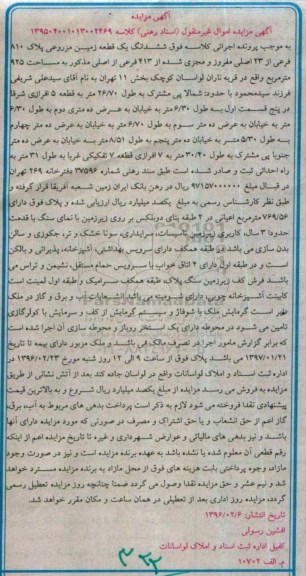 آگهی مزایده
آگهی مزایده اموال غیرمنقول (اسناد رهنی) کلاسه ۱۳۹۵۰۴۰۰۱۰۱۳۰۰۲۴۶۹
به موجب پرونده اجرائی کلاسه فوق ششدانگ یک قطعه زمین مزروعی پلاک ۸۱۰
فرعی از ۲۳ اصلی مفروز و مجزی شده از ۴۱۳ فرعی از اصلی مذکور به مساحت ۹۲۵
مترمربع واقع در قریه ناران لواسان کوچک بخش ۱۱ تهران به نام آقای سیدعلی شریفی
فرزند سیدمحمود با حدود: شمالا پی مشترک به طول ۲۶/۷۰ متر به قطعه ۵ افرازی شرقا
در پنج قسمت اول به طول ۶/۳۰ متر به خیابان به عرض ده متری دوم به طول ۶/۳۰
متر به خیابان به عرض ده متر سوم به طول ۶/۷۰ متر به خیابان به عرض ده متر چهارم
به طول ۵/۳۰ متر به خیابان ده متر پنجم به طول ۸/۵۱ متر به خیابان به عرض ده متر
جنوبا پی مشترک به طول ۳۰/۴۰ متر به ۷ افرازی قطعه ۷ تفکیکی غربا به طول ۳۱ متر به
راه احداثی ثبت و صادر شده است طبق سند رهنی شماره ۳۷۵۹۶ دفترخانه ۲۶۹ تهران
در قبال مبلغ ۹۷۱۵۷۰۰۰۰۰۰ ریال در رهن بانک ایران زمین شعبه آفریقا قرار گرفته و
طبق نظر کارشناس رسمی به مبلغ یکصد میلیارد ریال ارزیابی شده و پلاک فوق دارای
۷۶۹/۵۶ مترمربع اعیانی در ۲ طبقه بنای دوبلکس بر روی زیرزمین با نمای سنگ با قدمت
حدودا ۳ سال، کاربری زیرزمین تاسیسات، سرایداری، سونا خشک و تر، جکوزی و سالن
بدن سازی می باشد در طبقه همکف دارای سرویس بهداشتی، آشپزخانه، پذیرائی و بالکن
است و در طبقه اول دارای ۴ اتاق خواب با سرویس حمام مستقل، نشیمن و تراس می
باشد فرش کف زیرزمین سنگ پلاک، طبقه همکف سرامیک و طبقه اول لمینت است
کابینت آشپزخانه چوبی، دارای شومینه می باشد انشعابات آب و برق و گاز در ملک
ظهر است گرمایش ملک با شوفاژ و سیستم گرمایش از کف و سرمایش با کولرگازی
تامین می شود در محوطه دارای یک استخر روباز و محوطه سازی آن اجرا شده است
که برابر گزارش مامور اجرا در تصرف مالک می باشد و ملک مزبور دارای بیمه تا تاریخ
۱۳۹۷/۰۱/۲۱ می باشد پلاک فوق از ساعت ۹ الی ۱۲ روز شنبه مورخ ۱۳۹۶/۰۲/۲۳ در
اداره ثبت اسناد و املاک لواسانات واقع در لواسان جاده کند بعد از آتش نشانی از طریق
مزایده به فروش می رسد مزایده از مبلغ یکصد میلیارد ریال شروع و به بالاترین قیمت
پیشنهادی نقدا فروخته می شود لازم به ذکر است پرداخت بدهی های مربوط به آب، برق،
گاز اعم از حق انشعاب و یا حق اشتراک و مصرف در صورتی که مورد مزایده دارای آنها
باشد و نیز بدهی های مالیاتی و عوارض شهرداری و غیره تا تاریخ مزایده اعم از اینکه
رقم قطعی آن معلوم شده یا نشده باشد به عهده برنده مزایده است و نیز در صورت وجود
مازاد، وجوه پرداختی بابت هزینه های فوق از محل مازاد به برنده مزایده مسترد خواهد
شد و نیم عشر و حق مزایده نقدا وصول می گردد ضمنا چنانچه روز مزایده تعطیل رسمی
گردد، مزایده روز اداری بعد از تعطیلی در همان ساعت و مکان مقرر خواهد شد.
تاریخ انتشار: ۱۳۹۶/۰۲/۶
افشین رسولی
کفیل اداره ثبت اسناد و املاک لواسانات
م. الف ۱۰۷۰۲